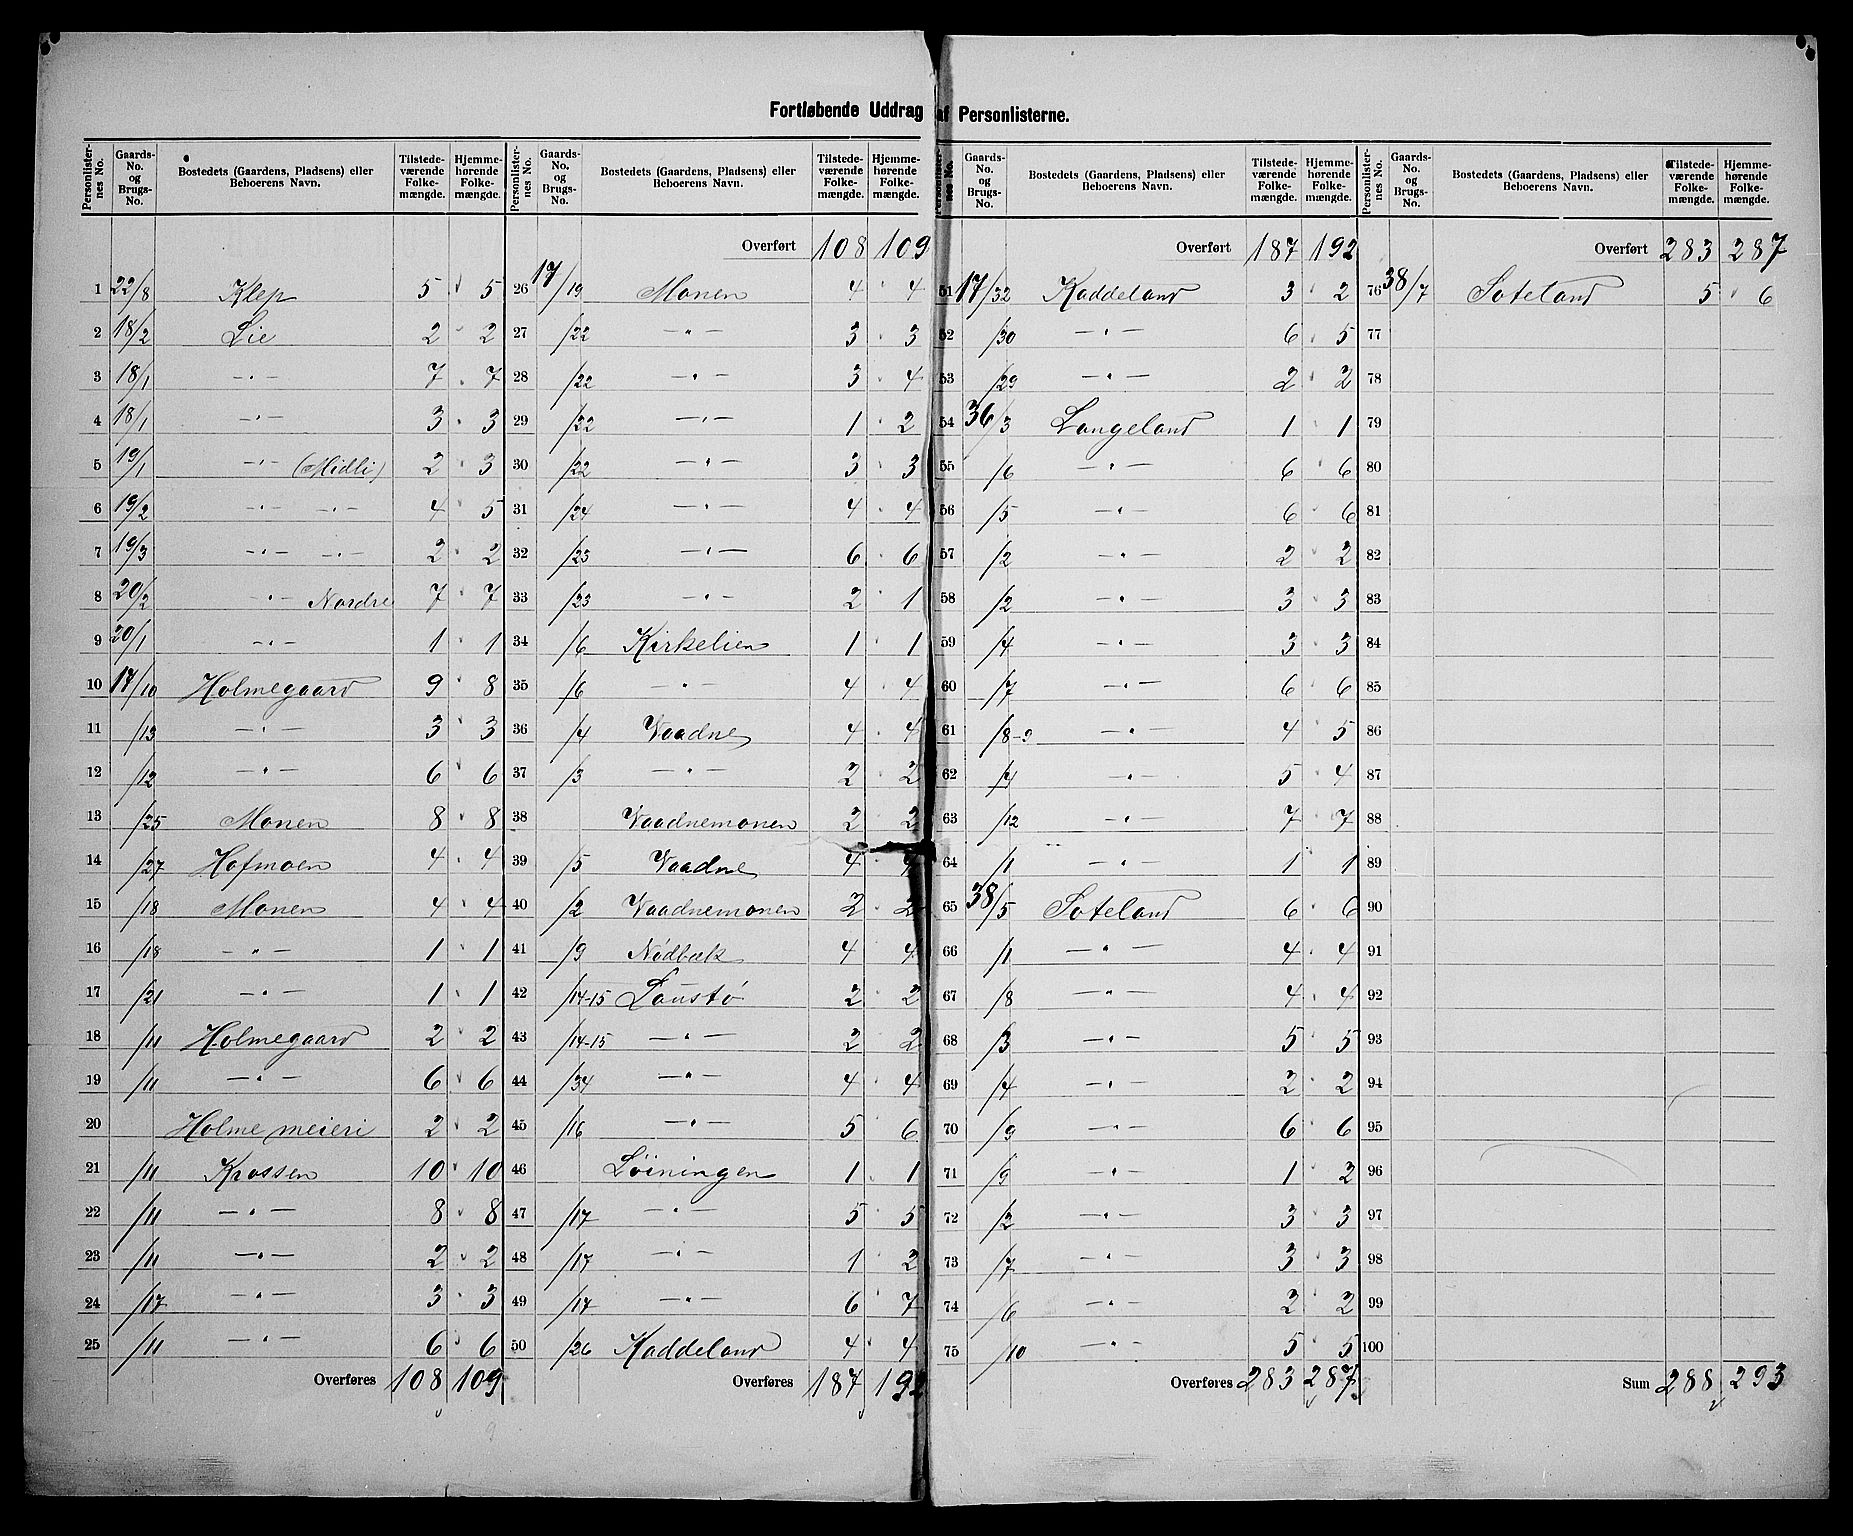 Fortløbende Uddrag af Personlisterne.
Personlisternes No. Gaards-No. og Brugs-No. Bostedets (Gaardens, Pladsens) eller Beboerens Navn. Tilstedeværende Folkemængde. Hjemmehørende Folkemængde.
1 22/8 Klep 5 5
2 18/2 Lie 2 2
3 18/1 -"- 7 7
4 18/1 -"- 3 3
5 19/1 -"- (Midli) 2 3
6 19/2 -"- -"- 4 5
7 19/3 -"- -"- 2 2
8 20/2 -"- Nordre 7 7
9 20/1 -"- 1 1
10 17/10 Holmegaard 9 8
11 /13 -"- 3 3
12 /12 -"- 6 6
13 /25 Monen 8 8
14 /27 Hofmoen 4 4
15 /18 Monen 4 4
16 /18 -"- 1 1
17 /21 -"- 1 1
18 /11 Holmegaard 2 2
19 /11 -"- 6 6
20 Holme meieri 2 2
21 /11 Krossen 10 10
22 /11 -"- 8 8
23 /11 -"- 2 2
24 /17 -"- 3 3
25 /11 -"- 6 6
Overføres 108 109
Personlisternes No. Gaards-No. og Brugs-No. Bostedets (Gaardens, Pladsens) eller Beboerens Navn. Tilstedeværende Folkemængde. Hjemmehørende Folkemængde.
Overført 108 109
26 17/19 Monen 4 4
27 /22 -"- 3 3
28 /22 -"- 3 4
29 /22 -"- 1 2
30 /22 -"- 3 3
31 /24 -"- 4 4
32 /23 -"- 6 6
33 /23 -"- 2 1
34 /6 Kirkelien 1 1
35 /6 -"- 4 4
36 /4 Vaadne 4 4
37 /3 -"- 2 2
38 Vaadnemonen 2 2
39 /5 Vaadne 4 4
40 /2 Vaadnemonen 2 2
41 /9 Nödbæk 4 4
42 /14-15 Laustø 2 2
43 /14-15 -"- 2 2
44 /34 -"- 4 4
45 /16 -"- 5 6
46 Löiningen 1 1
47 /17 -"- 5 5
48 /17 -"- 1 2
49 /17 -"- 6 7
50 /26 Kaddeland 4 4
Overføres 187 192
Personlisternes No. Gaards-No. og Brugs-No. Bostedets (Gaardens, Pladsens) eller Beboerens Navn. Tilstedeværende Folkemængde. Hjemmehørende Folkemængde.
Overført 187 192
51 17/32 Kaddeland 3 2
52 /30 -"- 6 5
53 /29 -"- 2 2
54 36/3 Langeland 1 1
55 /6 -"- 6 6
56 /5 -"- 6 6
57 /2 -"- 2 2
58 /2 -"- 3 3
59 /4 -"- 3 3
60 /7 -"- 6 6
61 /8-9 -"- 4 5
62 /4 -"- 5 4
63 /12 -"- 7 7
64 /1 -"- 1 1
65 38/5 Soteland 6 6
66 /1 -"- 4 4
67 /8 -"- 4 4
68 /3 -"- 5 5
69 /4 -"- 2 2
70 /9 -"- 6 6
71 /9 -"- 1 2
72 /2 -"- 3 3
73 /7 -"- 3 3
74 /6 -"- 2 2
75 /10 -"- 5 5
Overføres 283 287
Personlisternes No. Gaards-No. og Brugs-No. Bostedets (Gaardens, Pladsens) eller Beboerens Navn. Tilstedeværende Folkemængde. Hjemmehørende Folkemængde.
Overført 283 287
76 38/7 Soteland 5 6
77
78
79
80
81
82
83
84
85
86
87
88
89
90
91
92
93
94
95
96
97
98
99
100
Sum 288 293